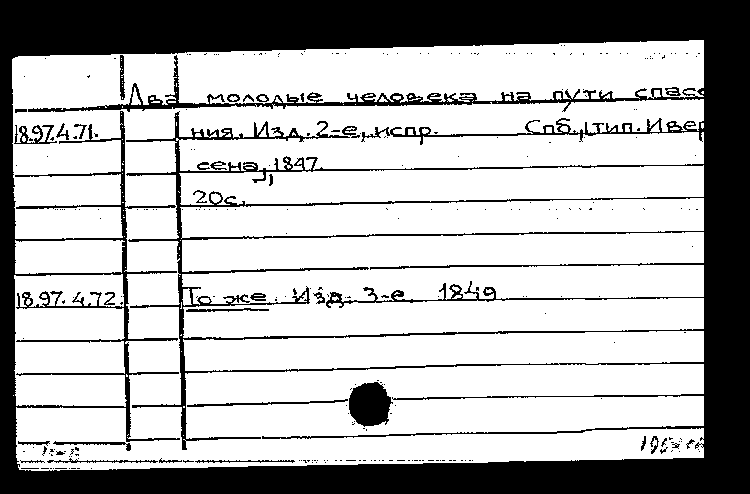 Два молодые человека на пути спасе
18.97.4.71. ния. Изд. 2-е, испр. Спб., [тип. Ивер
сена], 1847.
20с.
18.97.4.72. То же. Изд. 3-е. 1849